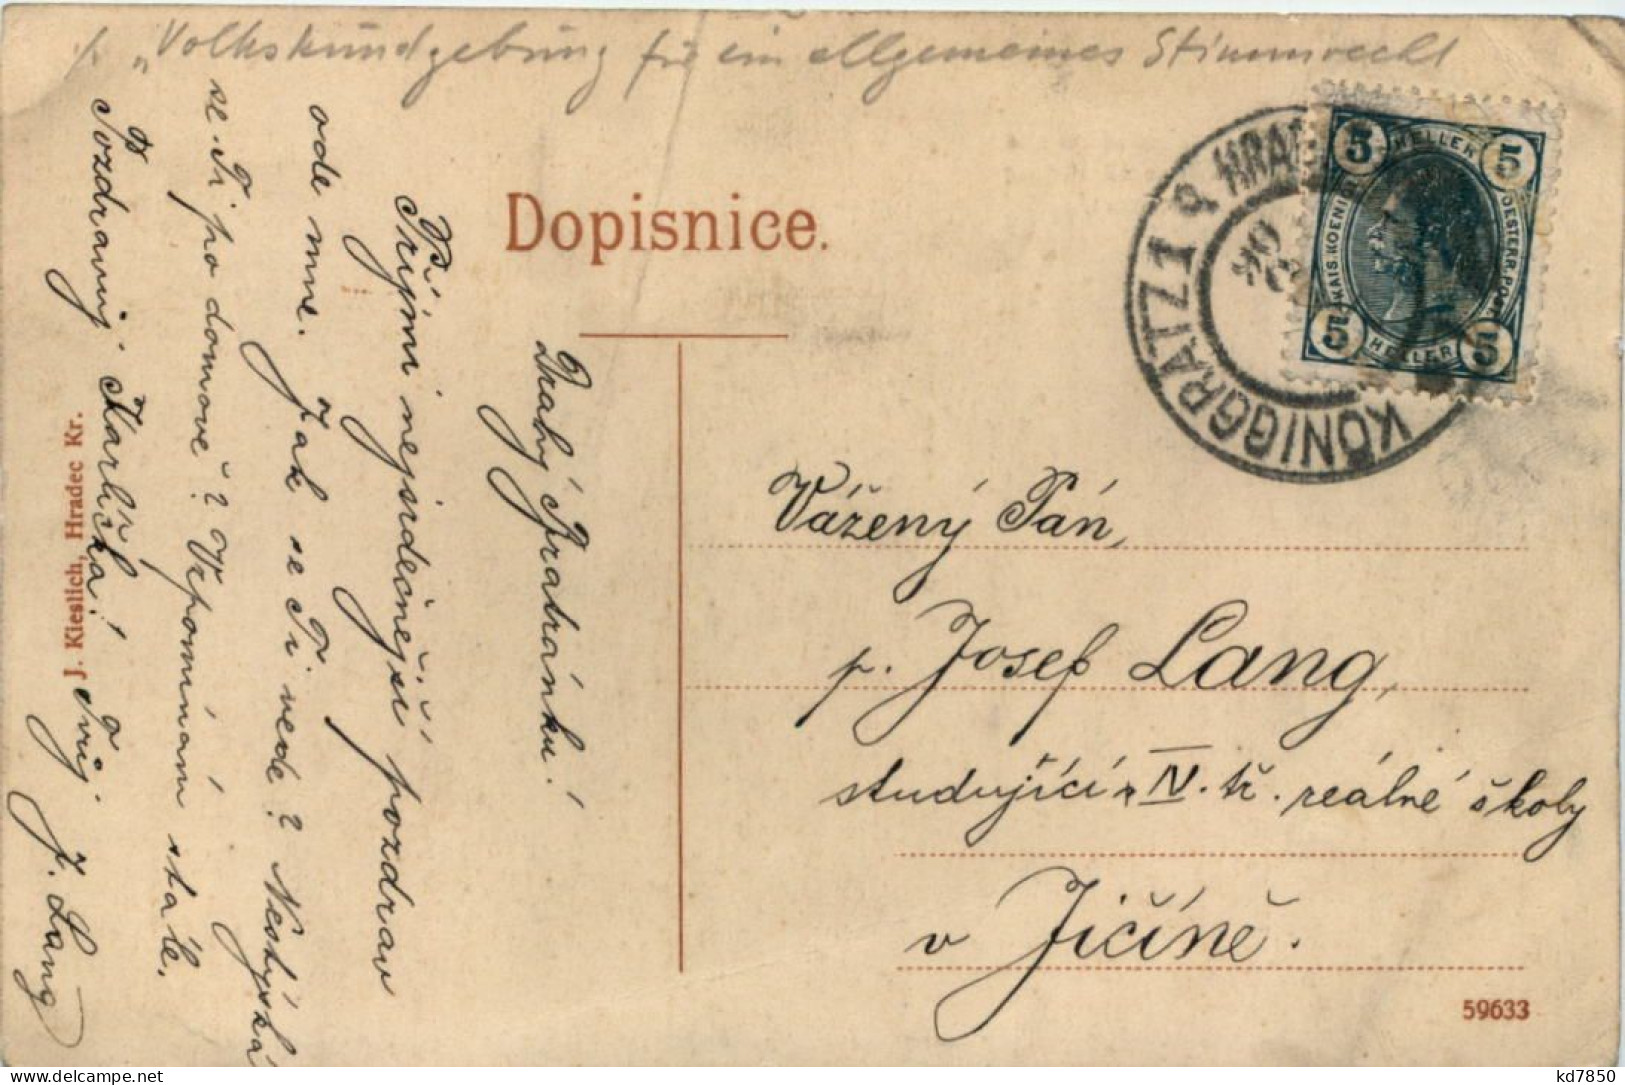 p. „Volkskundgebung für ein allgemeines Stimmrecht
Dopisnice.
KÖNIGGRATZ 1 * HRA
06
5 HELLER 5
KAIS. KOENIGL. OESTERR. POST
5 HELLER 5
Drahý Bratránku!
Přijmi nejsrdečnější pozdrav
ode mne. Jak se Ti vede? Nestýská
se Ti po domově? Vzpomínám stále.
Pozdravuj Karlíčka!
Tvůj
J. Lang
J. Kieslich, Hradec Kr.
Vážený Pán,
p. Josef Lang,
studující IV. tř. reálné školy
v Jičíně.
59633
kd7850